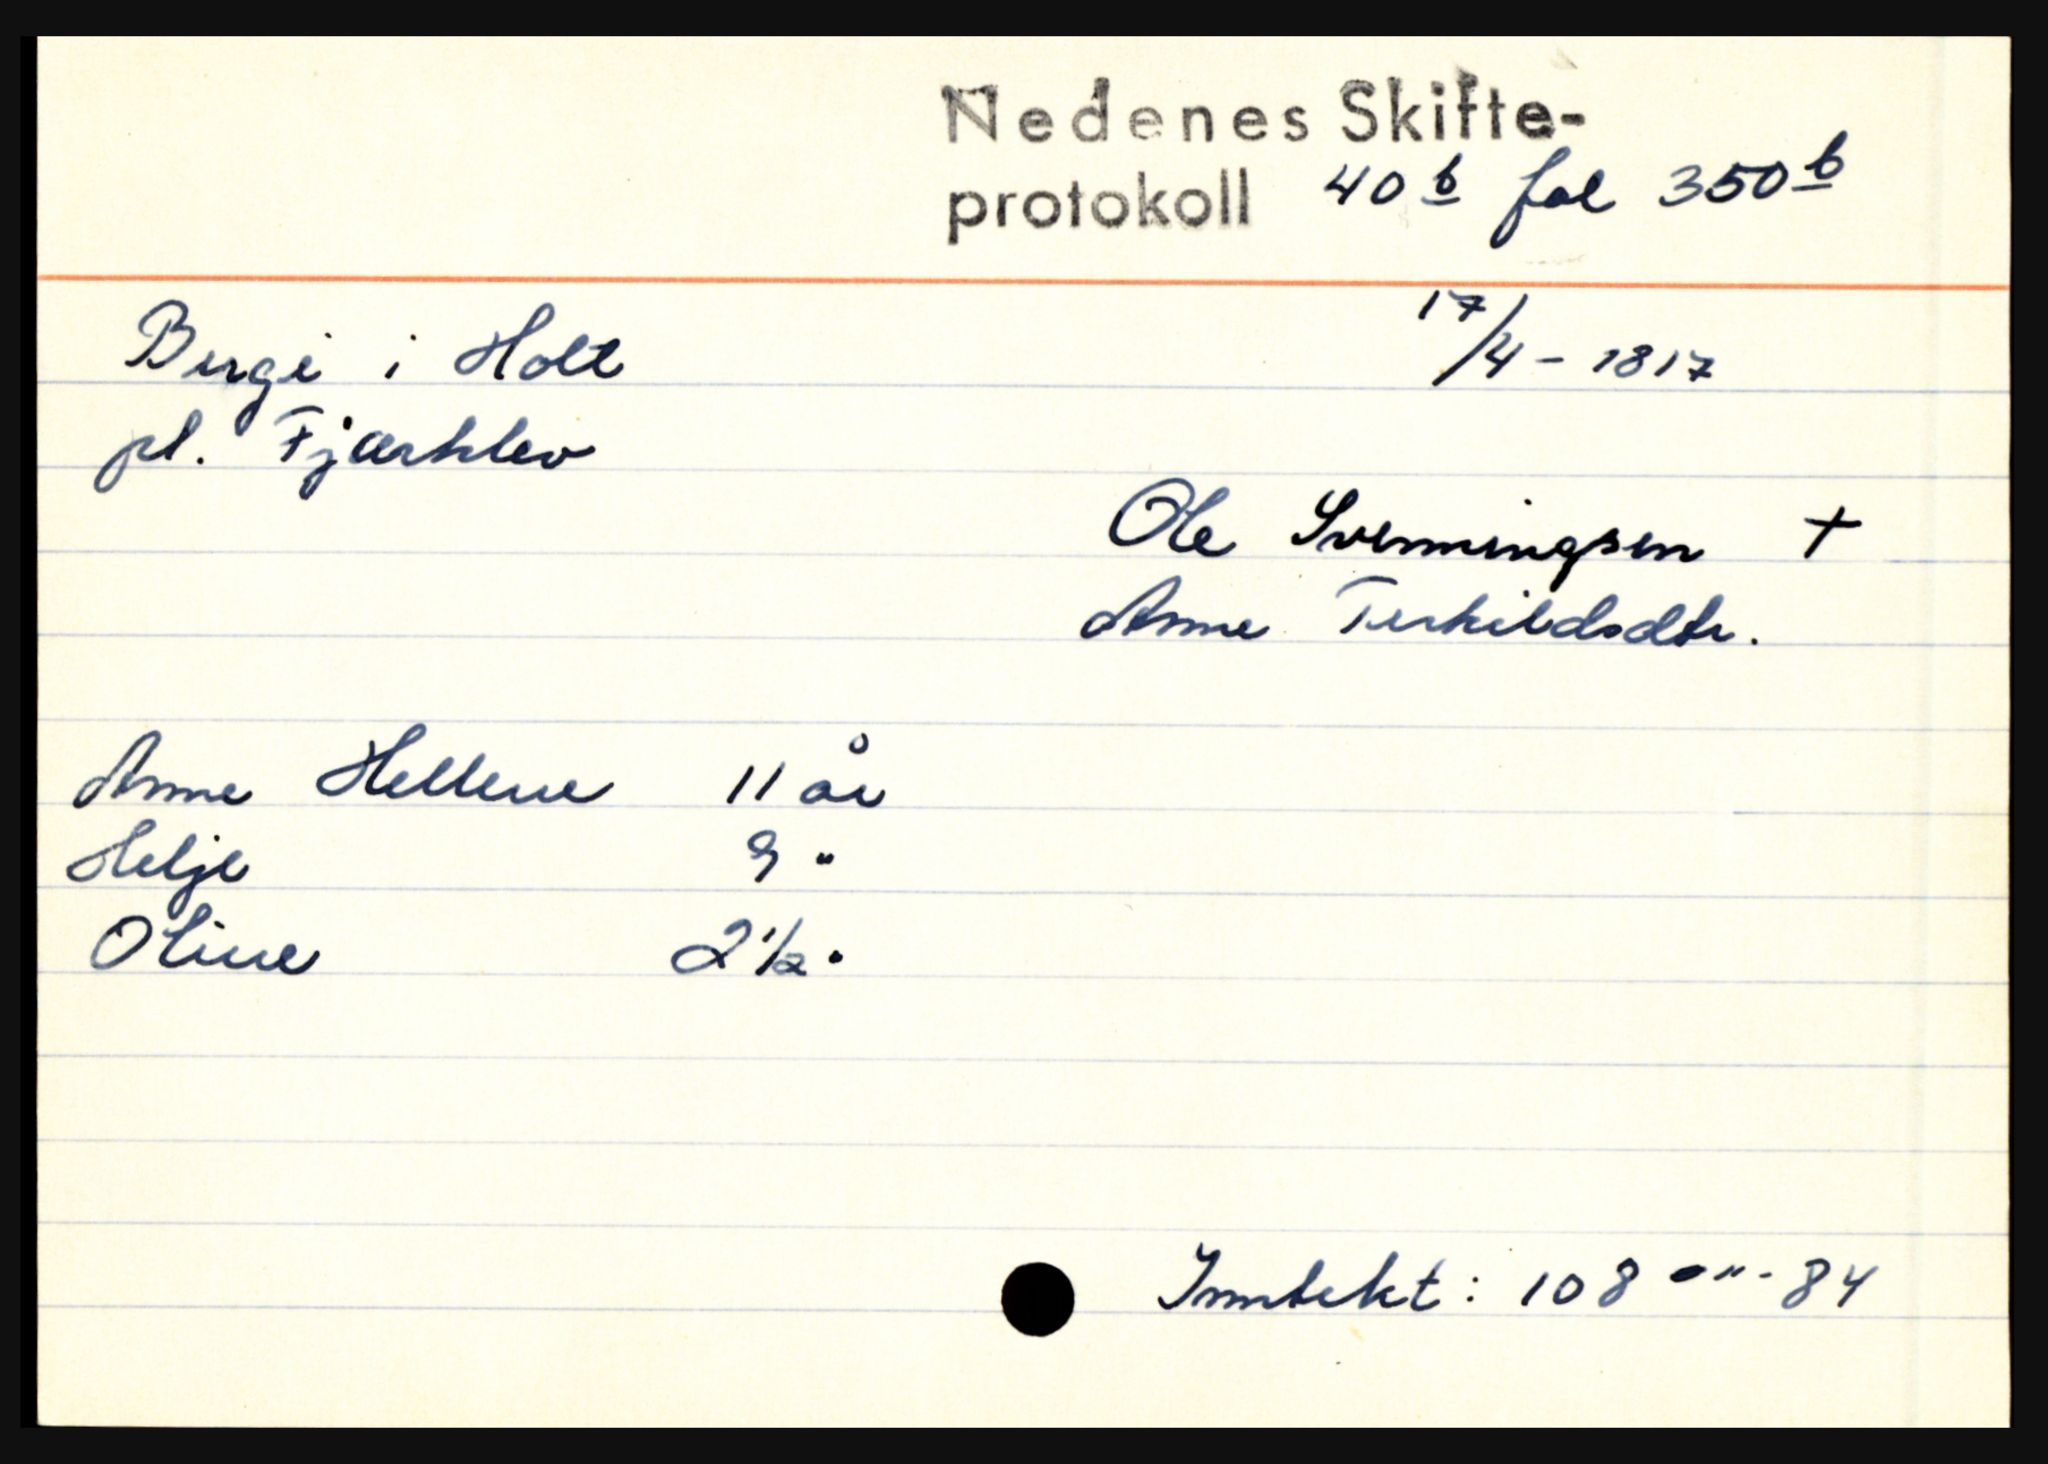 Nedenes Skifte-
protokoll 40 b fol 350 b
Berge i Holt 17/4 - 1817
pl. Fjærklev
Ole Svenningsen +
Anne Terkildsdtr.
Anne Hellene 11 år
Helje 9 "
Oline 2 1/2 "
Inntekt: 108 - " - 84